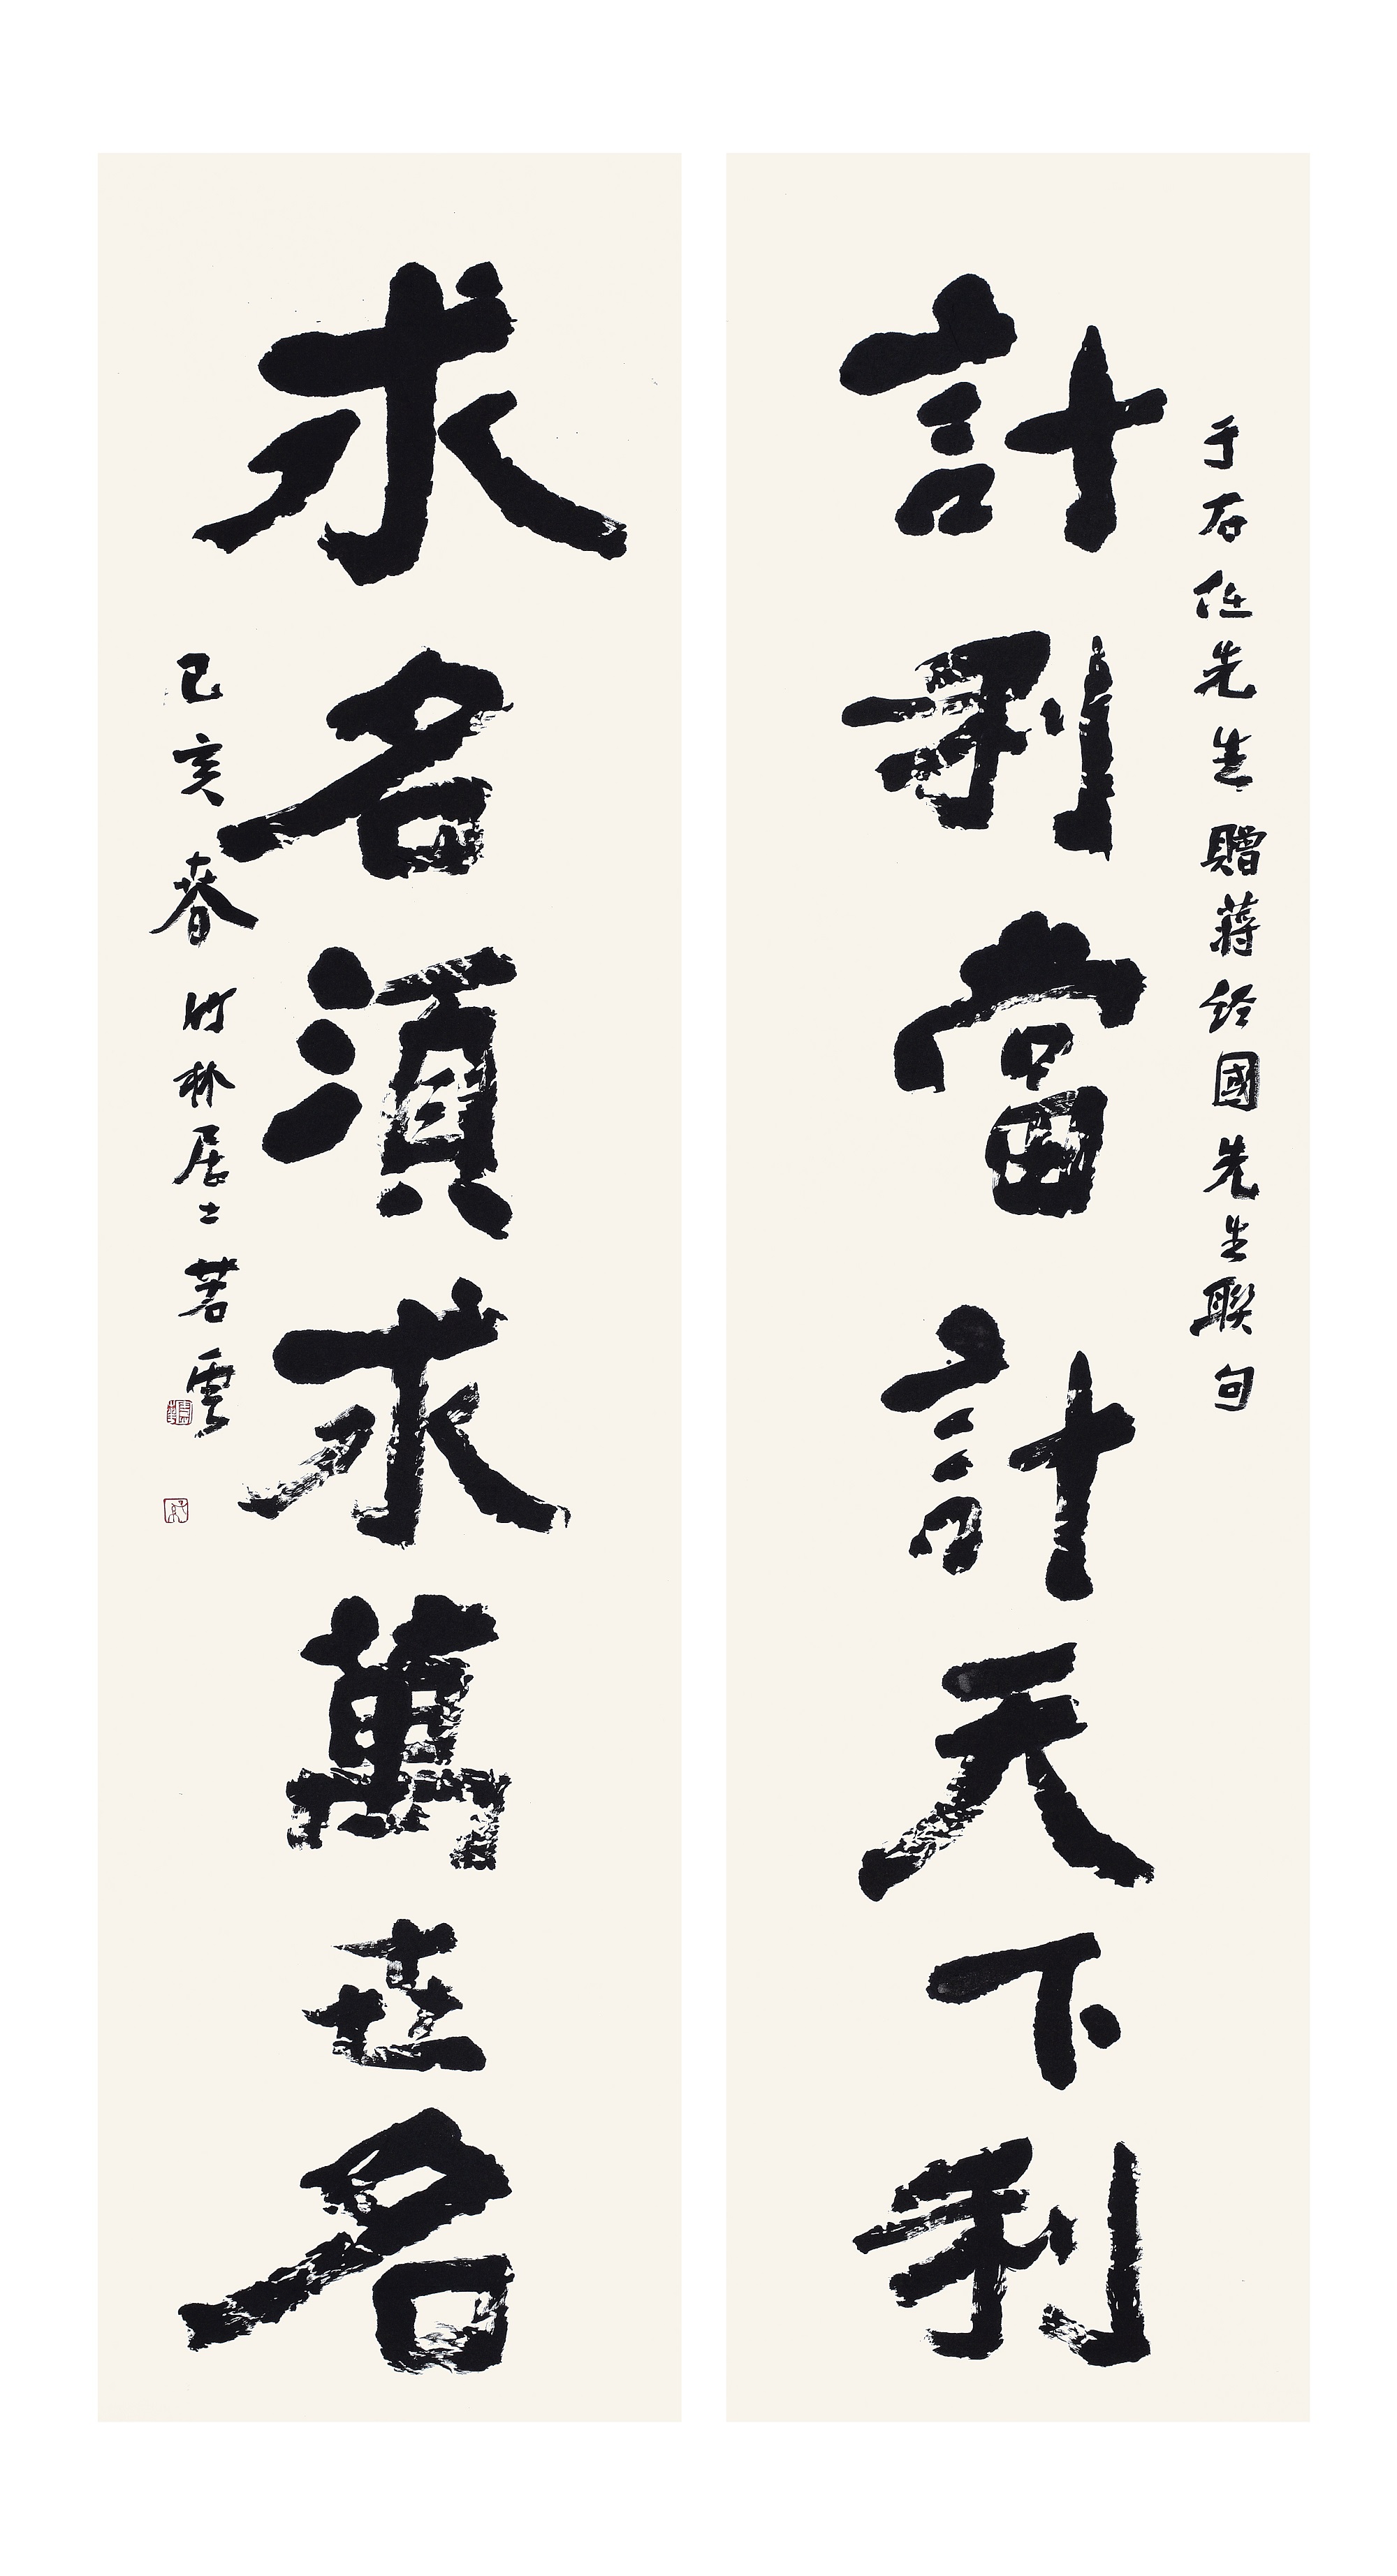 于右任先生贈蔣經國先生聯句
計利當計天下利
求名須求萬世名
己亥春竹林居士若雲